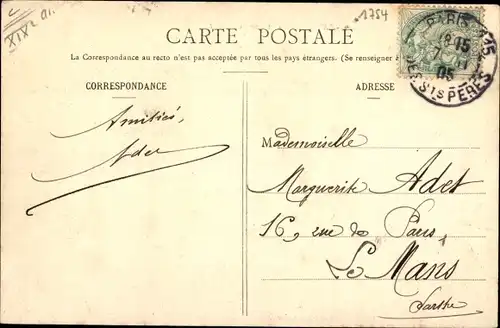 XIXe
1754
CARTE POSTALE
La Correspondance au recto n'est pas acceptée par tous les pays étrangers. (Se renseigner à
CORRESPONDANCE
ADRESSE
PARIS
15
05
DES STS PERES
Amitiés,
Adet
Mademoiselle
Marguerite Adet
16, rue de Paris,
Le Mans
Sarthe